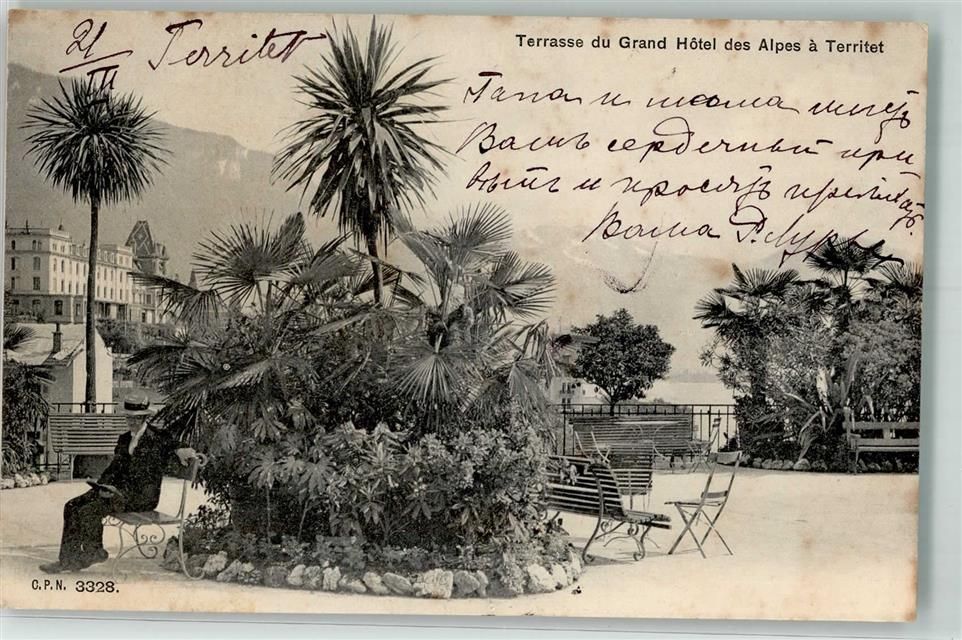 21/III Territet
Terrasse du Grand Hôtel des Alpes à Territet
Папа и мама шлютъ
Вамъ сердечный при
вѣтъ и просятъ
Ваша Р.
C.P.N. 3328.